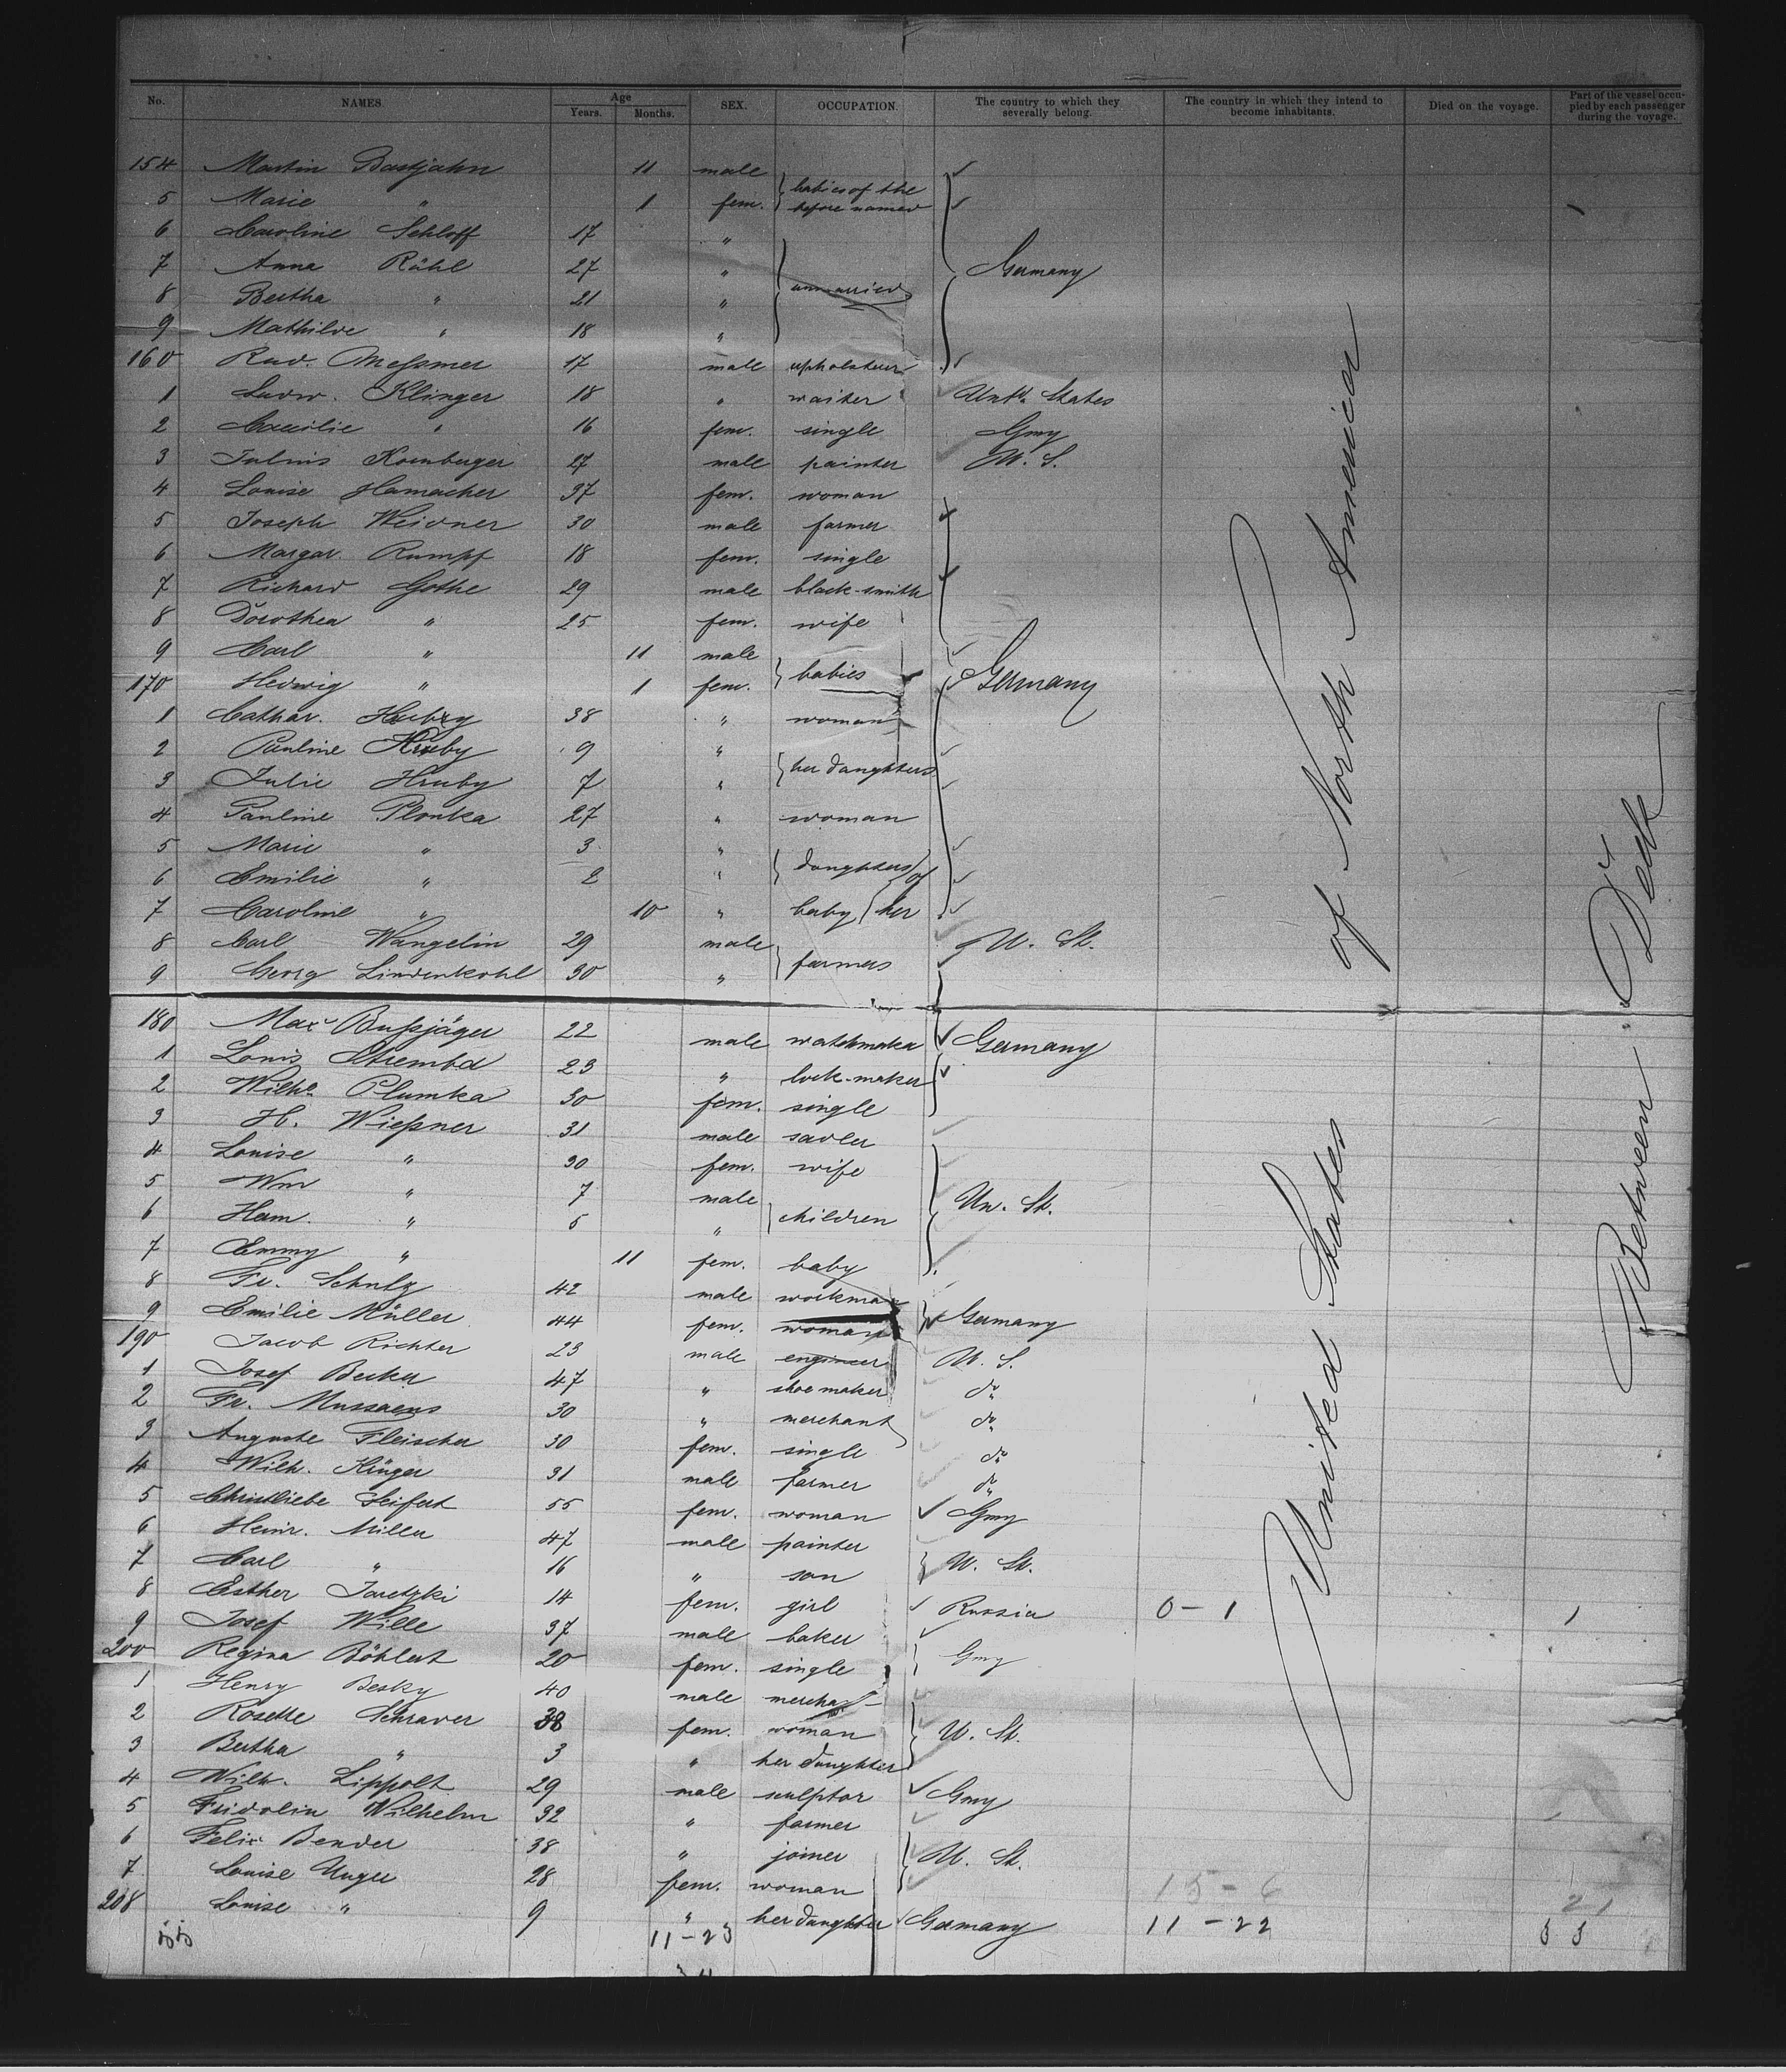 No. NAMES. Age Years. Months. SEX. OCCUPATION. The country to which they severally belong. The country in which they intend to become inhabitants. Died on the voyage. Part of the vessel occupied by each passenger during the voyage.
154 Martin Bastjahn 11 male } babies of the before named
5 Marie " 1 fem.
6 Caroline Schloff 17 "
7 Anna Rühl 27 " } unmarried Germany
8 Bertha " 21 "
9 Mathilde " 18 "
160 Rud. Meßmer 17 male upholsteur
1 Ludw. Klinger 18 " waiter Untd. States
2 Caecilie " 16 fem. single Gmy
3 Julius Kornburger 27 male painter U. S.
4 Louise Hamacher 37 fem. woman
5 Joseph Weidner 30 male farmer
6 Margar. Rumpf 18 fem. single
7 Richard Gothe 29 male black-smith
8 Dorothea " 25 fem. wife
9 Carl " 11 male } babies
170 Hedwig " 1 fem. Germany
1 Cathar. Hruby 38 " woman
2 Pauline Hruby 9 " } her daughters
3 Julie Hruby 7 "
4 Pauline Plonka 27 " woman
5 Marie " 3 " } daughters of
6 Emilie " 2 "
7 Caroline " 10 " baby her
8 Carl Wangelin 29 male } farmers U. St.
9 Georg Lindenkohl 30 "
180 Max Bußjäger 22 male watchmaker Germany
1 Louis Strembel 23 " lock-maker
2 Wilhe. Plumka 30 fem. single
3 H. Wießner 31 male sadler
4 Louise " 30 fem. wife
5 Wm " 7 male } children Un. St.
6 Herm. " 5 "
7 Emmy " 11 fem. baby
8 Fr. Schulz 42 male workman
9 Emilie Müller 44 fem. woman Germany
190 Jacob Richter 23 male engineer U. S.
1 Josef Becker 47 " shoe maker do
2 Fr. Mussaeus 30 " merchant do
3 Auguste Fleischer 30 fem. single do
4 Wilh. Krüger 31 male farmer do
5 Christliebe Seifert 55 fem. woman Gmy
6 Heinr. Miller 47 male painter
7 Carl " 16 " son U. St.
8 Esther Jaretzki 14 fem. girl Russia 0-1 1
9 Josef Wille 37 male baker
200 Regina Böhlert 20 fem. single Gmy
1 Henry Besky 40 male merchant
2 Rosette Schrader 38 fem. woman U. St.
3 Bertha " 3 " her daughter
4 Wilh. Lippolt 29 male sculptor Gmy
5 Fridolin Wilhelm 32 " farmer
6 Felix Bender 38 " joiner U. St.
7 Louise Unger 28 fem. woman 15-6
208 Louise " 9 " her daughter Germany 11-22 21
55 11-23 33
United States of North America
Between Deck